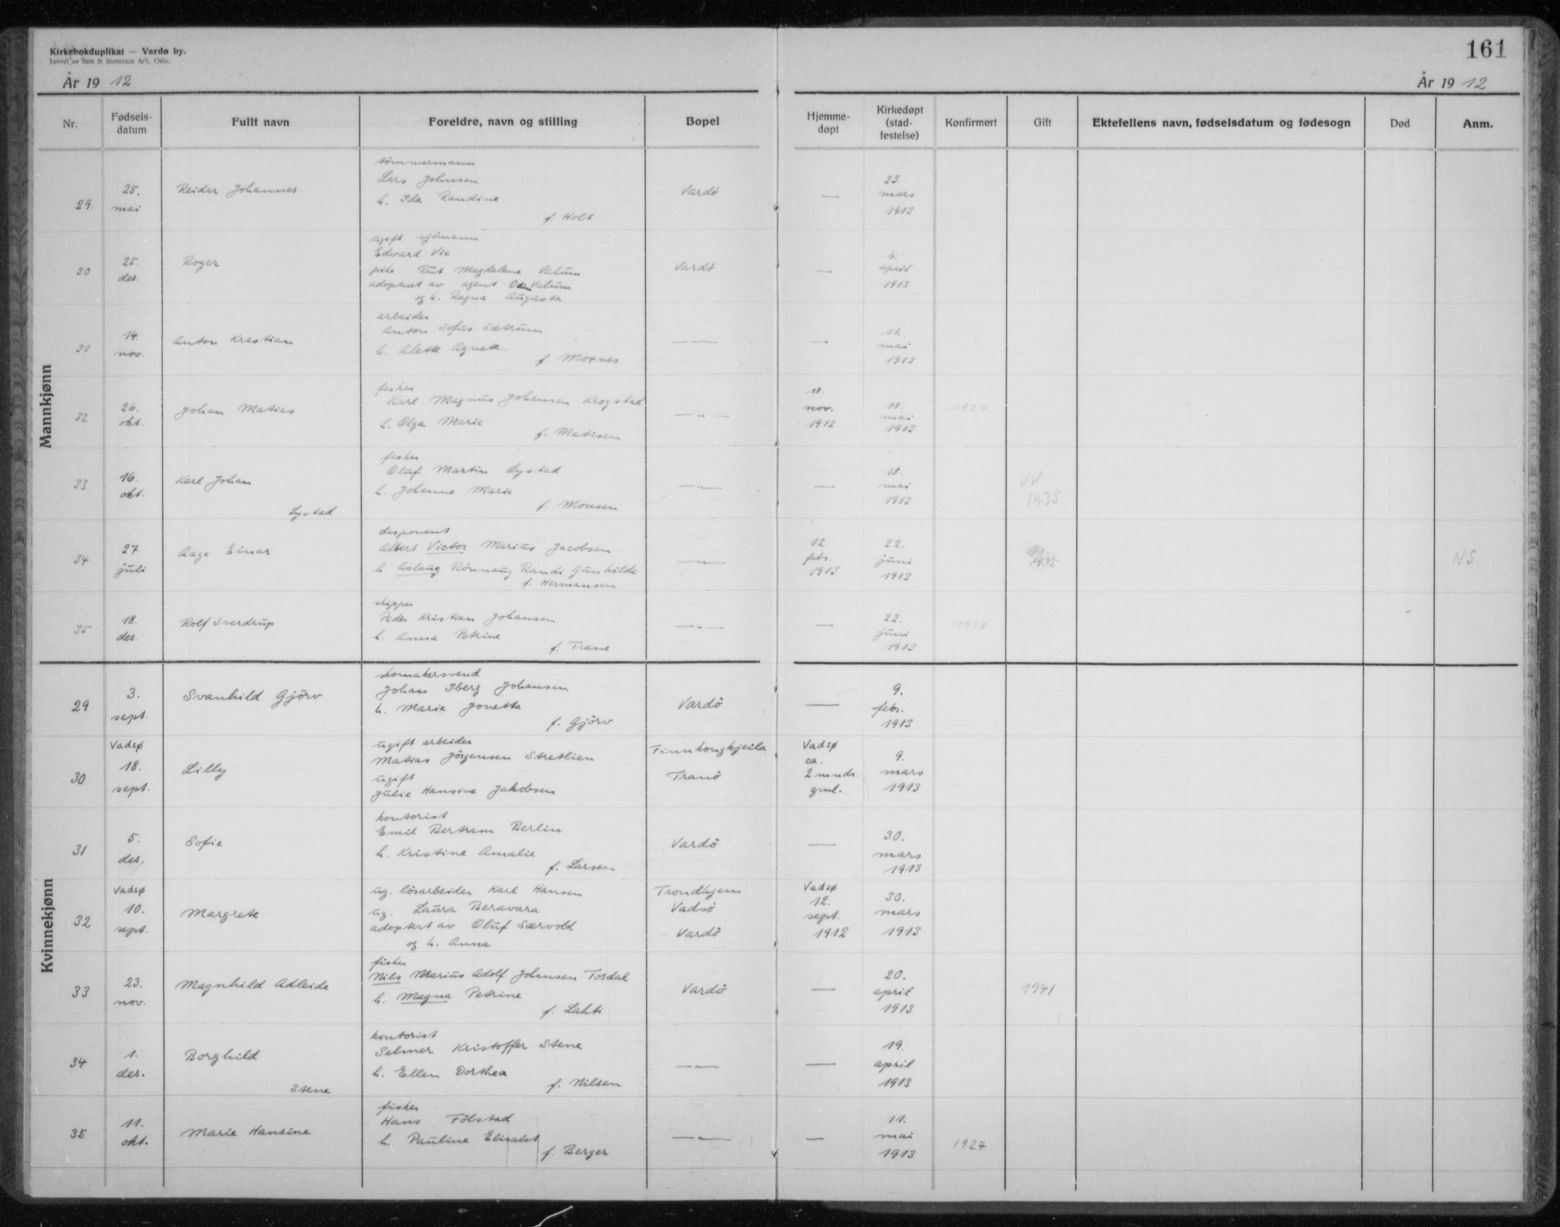 Kirkebokduplikat — Vardø by.
Levert av Sem & Stenersen A/S, Oslo.
161
År 19 12
År 19 12
Nr. Fødselsdatum Fullt navn Foreldre, navn og stilling Bopel Hjemmedøpt Kirkedøpt (stadfestelse) Konfirmert Gift Ektefellens navn, fødselsdatum og fødesogn Død Anm.
Mannkjønn
tømmermann
29. 25. mai Reidar Johannes Lars Johnsen Vardö — 23. mars 1913
h. Ida Randine
f. Holt
ugift sjömann
30 25. des. Roger Edvard Vie Vardö — 6. april 1913
pike Magdalena Valum
adoptert av agent Odin Valum
og h. Ragna Augusta
arbeider
31 14. nov. Anton Kristian Anton Sofus Sætrum —"— — 11. mai 1913
h. Alette Agnete
f. Mornes
fisker
32 26. okt. Johan Matias Karl Magnus Johansen Krogstad —"— 18. nov. 1912 18. mai 1913 1927
h. Olga Marie
f. Matisen
fisker
33 16. okt. Karl Johan Lystad Oluf Martin Lystad —"— — 18. mai 1913 VH 1935
h. Johanne Marie
f. Monsen
disponent
34 27. juli Aage Einar Albert Victor Marius Jacobsen —"— 12. febr. 1913 22. juni 1913 NS
h. Aslaug Rönnaug Randi Gunhilde
f. Hermansen
skipper
35 18. des. Rolf Sverdrup Peder Kristian Johansen —"— — 22. juni 1913 1928
h. Anna Petrine
f. Trane
Kvinnekjønn
skomakersvend
29 3. sept. Svanhild Gjörv Johan Iberg Johansen Vardö — 9. febr. 1913
h. Marie Jonetta
f. Gjörv
Vadsø ugift arbeider Finnkongkjeila Vadsø
30 18. sept. Lilly Matias Jörgensen Stretlien ca. 2 mnds. gml. 9. mars 1913
ugift Tranö
Julie Hansine Jakobsen
kontorist
31 5. des. Sofie Emil Bertram Berlin Vardö — 30. mars 1913
h. Kristine Amalie
f. Larsen
Vadsø ug. lösarbeider Karl Hansen Trondhjem Vadsø
32 10. sept. Margrete ug. Laura Beravara Vadsö 12. sept. 1912 30. mars 1913
adoptert av Oluf Særvold Vardö
og h. Anna
fisker
33 23. nov. Magnhild Adleide Nils Marius Adolf Johansen Tosdal Vardö — 20. april 1913 1941
h. Magna Petrine
f. Lahti
kontorist
34 1. des. Borghild Stene Selmer Kristoffer Stene —"— — 19. april 1913
h. Ellen Dorthea
f. Nilsen
fisker
35 11. okt. Marie Hansine Hans Fölstad —"— — 11. mai 1913 1927
h. Pauline Elisabet
f. Berger